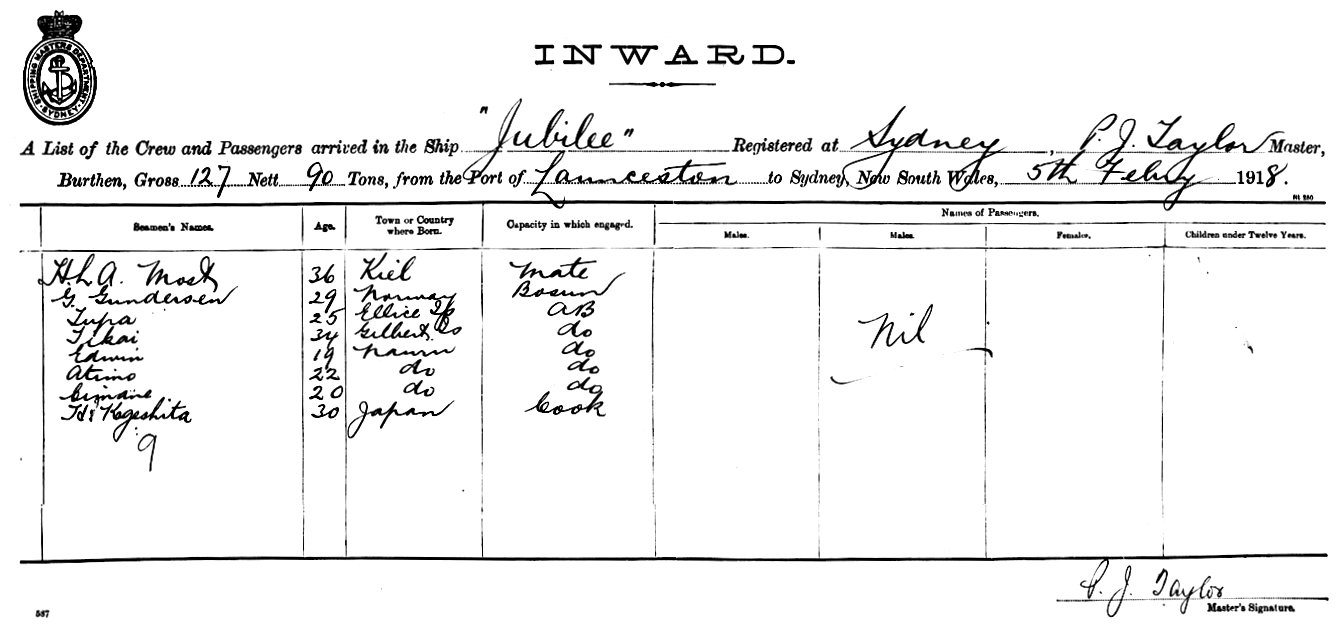 SHIPPING MASTERS DEPARTMENT. SYDNEY.
INWARD.
A List of the Crew and Passengers arrived in the Ship "Jubilee" Registered at Sydney, P. J. Taylor Master,
Burthen, Gross 127 Nett 90 Tons, from the Port of Launceston to Sydney, New South Wales, 5th Febry 1918.
Names of Passengers.
Seamen's Names. Age. Town or Country where Born. Capacity in which engaged. Males. Males. Females. Children under Twelve Years.
36 Kiel Mate
G. Gundersen 29 Norway Bosun
Tupa 25 Ellice Is AB
Tikai 34 Gilbert Is do
Edwin 19 Nauru do
Atimo 22 do do
20 do do
Kageshita 30 Japan Cook
Nil
9
P. J. Taylor
Master's Signature.
587